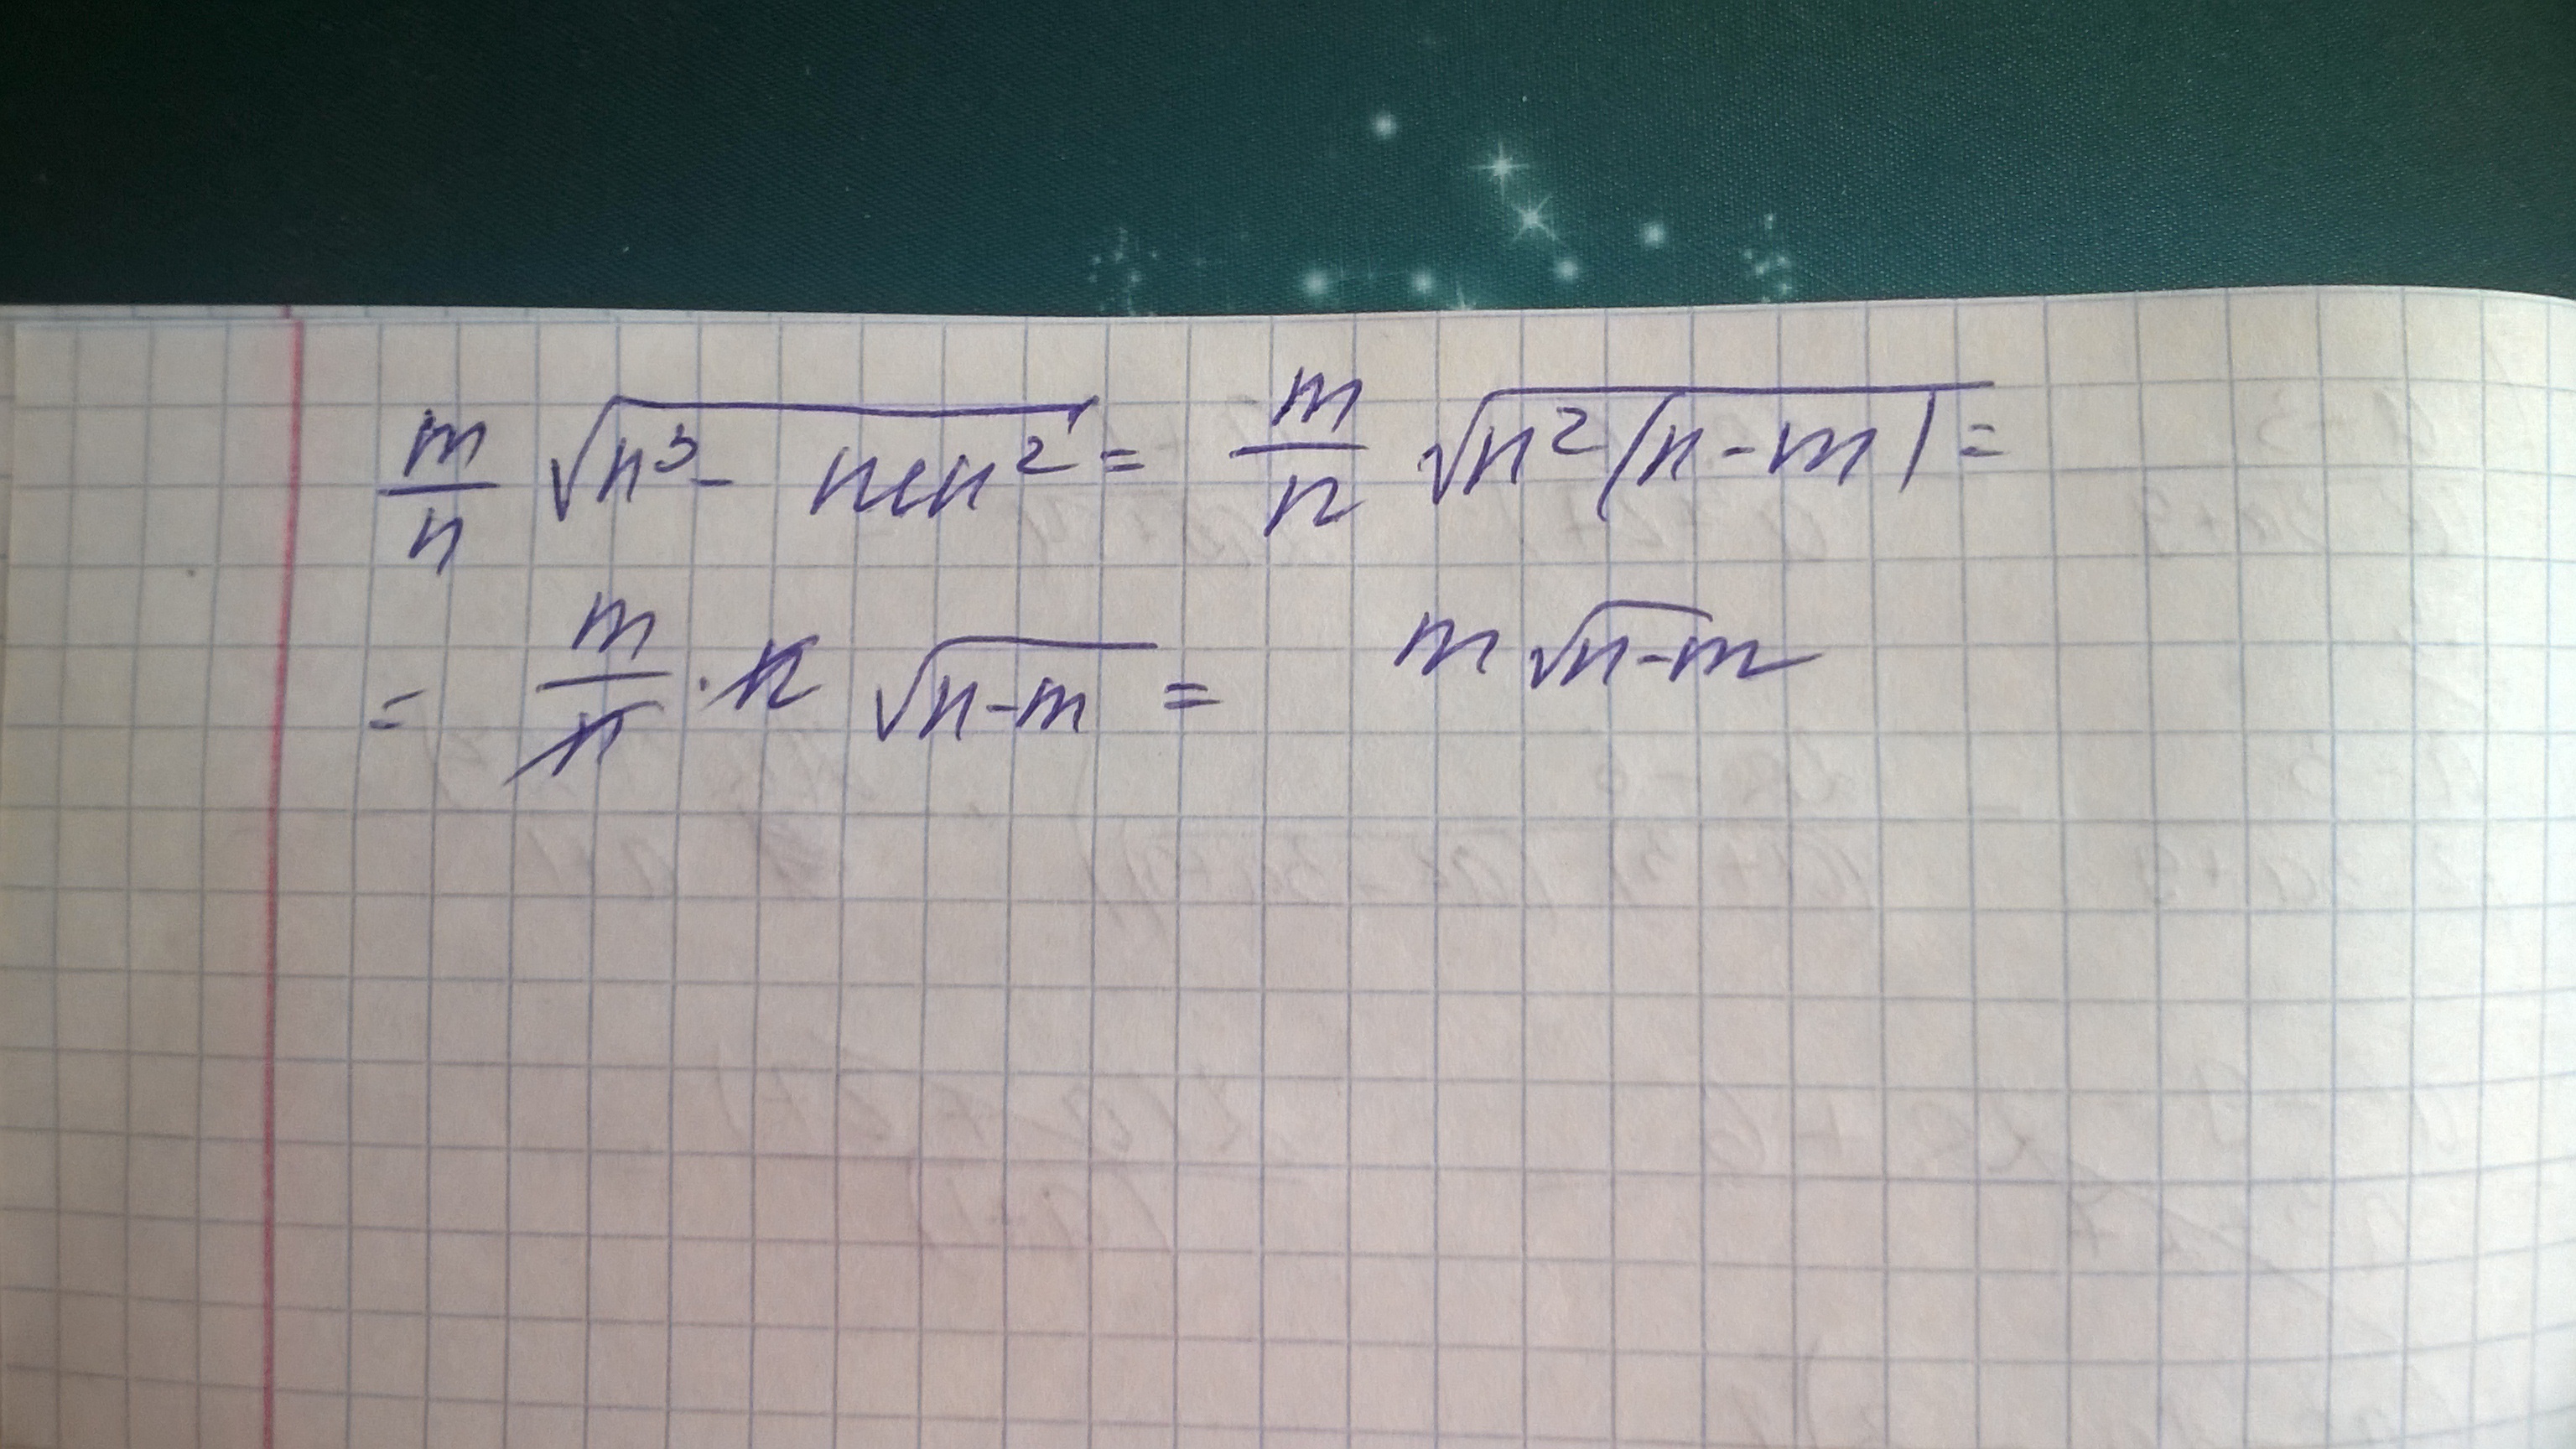 m/n √(n³ - mn²) = m/n √(n²(n-m)) =
= m/n · n √(n-m) = m √(n-m)